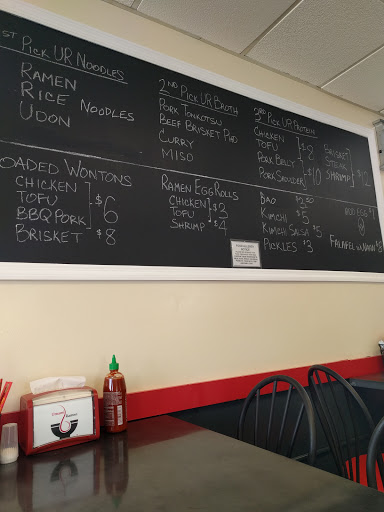 1ST PICK UR NOODLES
RAMEN
RICE NOODLES
UDON
2ND PICK UR BROTH
PORK TONKOTSU
BEEF BRISKET PHO
CURRY
MISO
3RD PICK UR PROTEIN
CHICKEN
TOFU $8
PORK BELLY
PORK SHOULDER $10
BRISKET
STEAK
SHRIMP $12
LOADED WONTONS
CHICKEN
TOFU $6
BBQ PORK
BRISKET $8
RAMEN EGG ROLLS
CHICKEN $3
TOFU
SHRIMP $4
BAO $2.50
KIMCHI $5
KIMCHI SALSA $5
PICKLES $3
EGG $1
FALAFEL W/NAAN $8